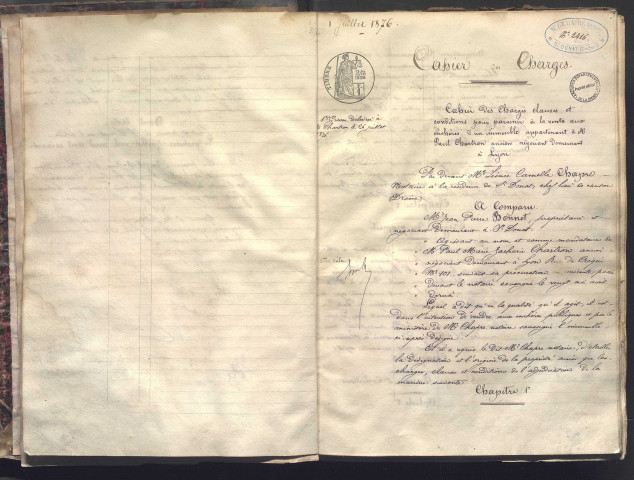 1 Juillet 1876.
Nº 2416
Cahier des Charges.
Cahier des Charges clauses et
conditions pour parvenir à la vente aux
enchères d'un immeuble appartenant à M.
Paul Chartron ancien négociant demeurant
à Lyon
Par devant Me Camille Chapre
Notaire à la résidence de St Donat, chef lieu de canton
(Drôme)
A Comparu
M. Jean Pierre Bonnet, propriétaire et
négociant demeurant à St Donat.
Agissant au nom et comme mandataire de
M. Paul Marie Zacharie Chartron ancien
négociant demeurant à Lyon Rue de
Nº 101, suivant sa procuration
devant le notaire soussigné le vingt six août
dernier
Lequel a dit qu'en la qualité qu'il agit, il est
dans l'intention de vendre aux enchères publiques et par le
ministère de Me Chapre notaire soussigné l'immeuble
ci-après désigné
Et il a requis le dit Me Chapre notaire, d'établir
la désignation et l'origine de la propriété ainsi que les
charges, clauses et conditions de l'adjudication de la
manière suivante:
Chapitre 1er